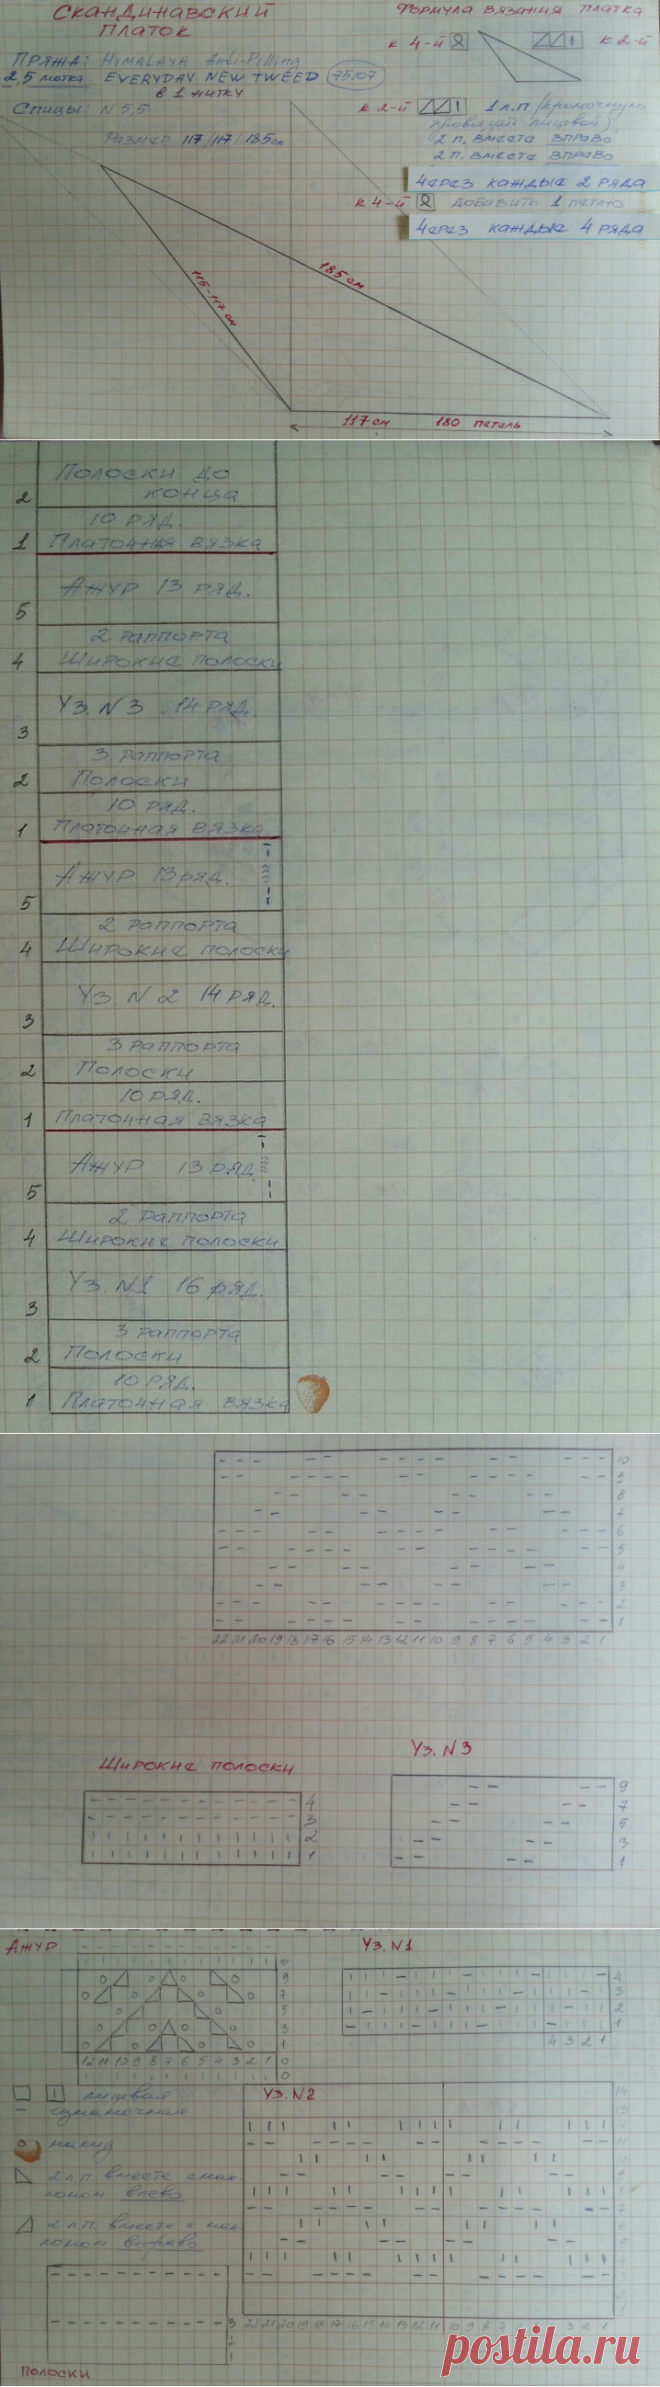 Скандинавский
платок
Пряжа: Himalaya Anti-Pilling
2,5 мотка EVERYDAY NEW TWEED 75107
в 1 нитку
Спицы: N 5,5
Размер 117/117/185см
Формула вязания платка
к 4-й
к 2-й
к 2-й
1 л.п (кромочную
провязать лицевой),
2 п. вместе вправо
2 п. вместе вправо
Через каждые 2 ряда
к 4-й
добавить 1 петлю
Через каждые 4 ряда
115-117 см
185 см
117 см 180 петель
2 Полоски до
конца
10 ряд.
1 Платочная вязка
5 Ажур 13 ряд.
2 раппорта
4 Широкие полоски
3 Уз. N 3 14 ряд.
3 раппорта
2 Полоски
10 ряд.
1 Платочная вязка
5 Ажур 13 ряд.
2 раппорта
4 Широкие полоски
3 Уз N 2 14 ряд.
3 раппорта
2 Полоски
10 ряд.
1 Платочная вязка
5 Ажур 13 ряд
2 раппорта
4 Широкие полоски
3 Уз. N1 16 ряд.
3 раппорта
2 Полоски
10 ряд.
1 Платочная вязка
10
9
8
7
6
5
4
3
2
1
22 21 20 19 18 17 16 15 14 13 12 11 10 9 8 7 6 5 4 3 2 1
Широкие полоски
4
3
2
1
Уз. N3
9
7
5
3
1
Ажур
9
7
5
3
1
12 11 10 9 8 7 6 5 4 3 2 1
Уз. N1
4
3
2
1
4 3 2 1
лицевая
изнаночные
накид
2 л.п. вместе с нак-
лоном влево
2 л.п. вместе с нак-
лоном вправо
Уз. N2
3
2
1
Полоски
postila.ru